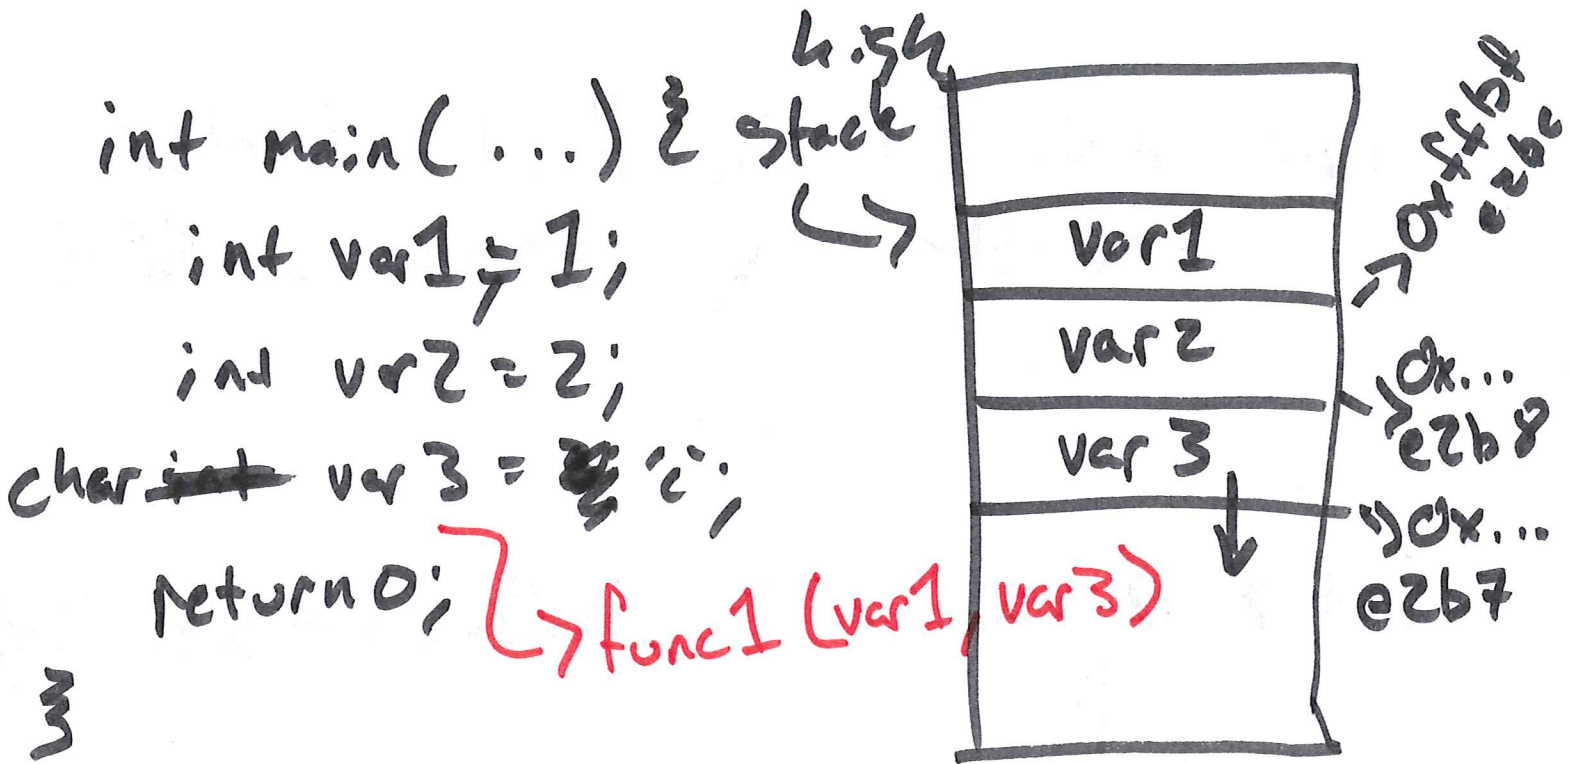 int main(...) {
int var1 = 1;
int var2 = 2;
char var3 = 'c';
return 0;
}
func1(var1, var3)
high
stack
var1
var2
var3
0xffbf
e2bc
0x...
e2b8
0x...
e2b7